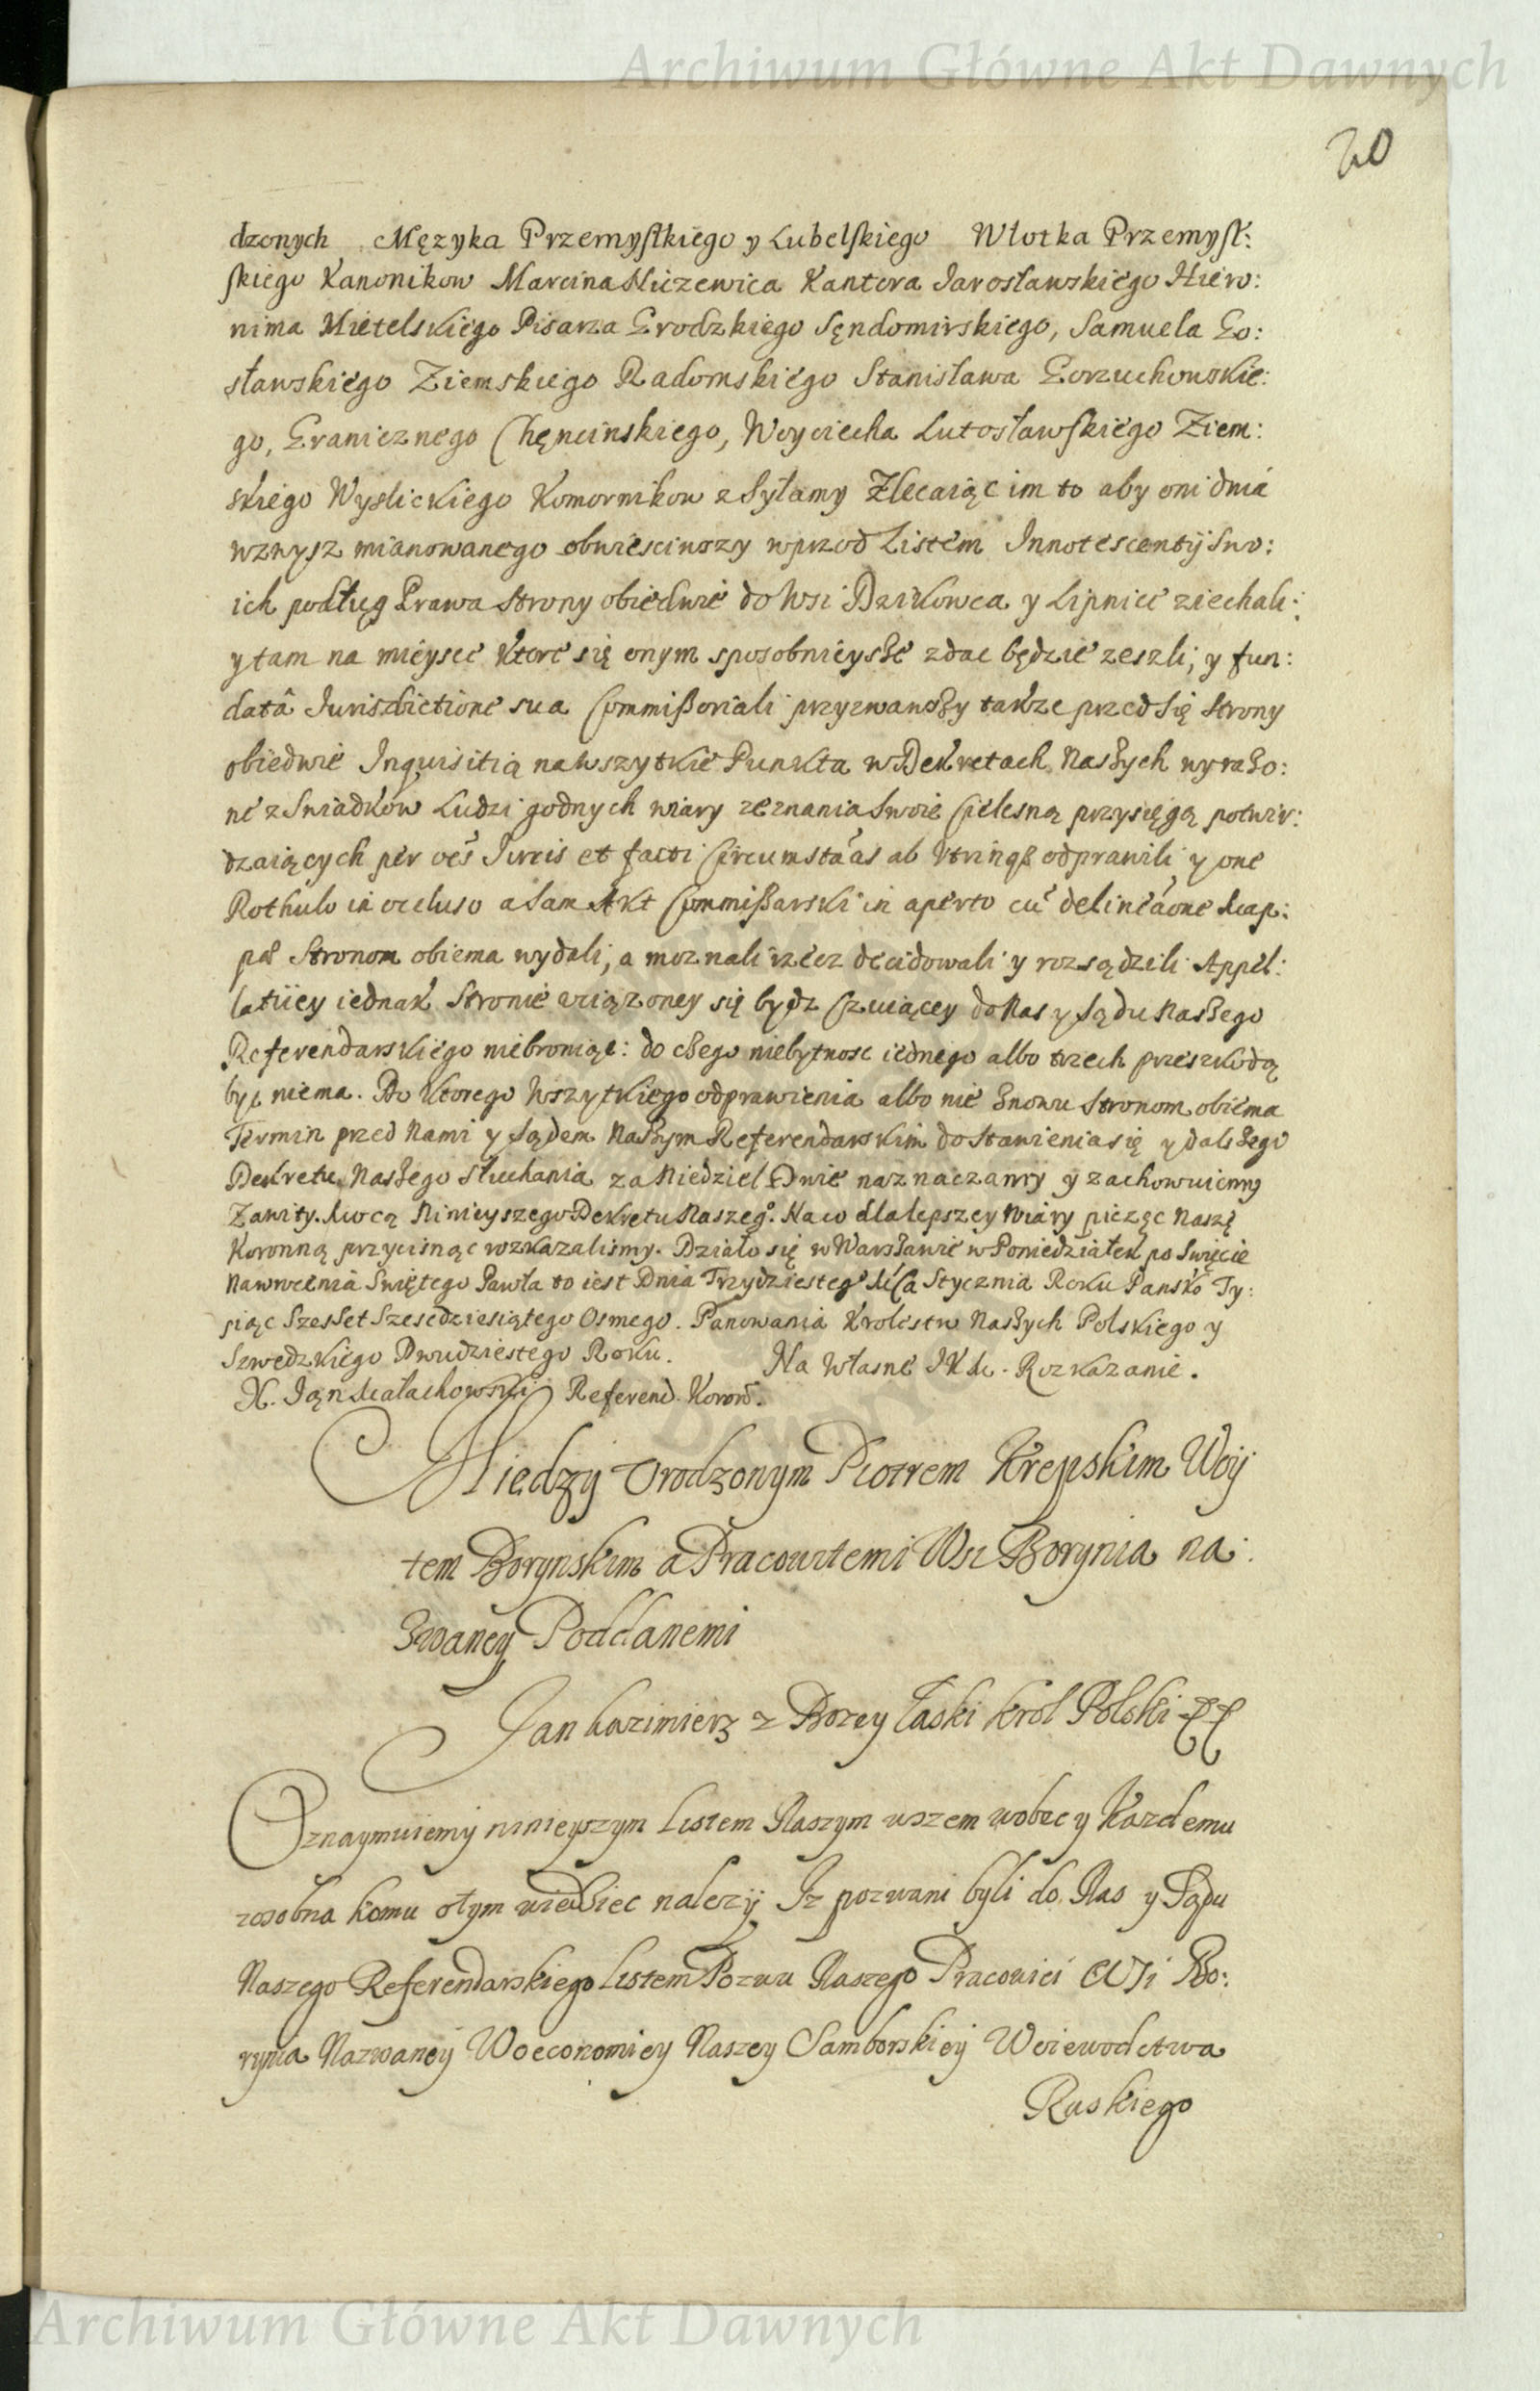 Archiwum Główne Akt Dawnych
20
dzonych Męzyka Przemyſkiego y Lubelſkiego Wlotka Przemyſ:
ſkiego Kanonikow Marcina Kantora Iarosławskiego Hiero:
nima Mietelskiego Pisarza Grodzkiego Sęndomirskiego, Samuela Go:
sławskiego Ziemskiego Radomskiego Stanisława Gorzuchowskie:
go, Granicznego Chęncinskiego, Woyciecha Lutosławſkiego Ziem:
skiego Wyslickiego Komornikow zsyłamy Zlecaiąc im to aby oni dnia
wzwysz mianowanego obwiesciwszy wprzod Listem Innotescentij Swo:
ich podług Prawa Strony obiedwie do Wsi Dzikowca y Lipnice ziechali:
y tam na mieysce ktore się onym sposobnieysze zdac będzie zeszli, y fun:
datâ Iurisdictione sua Commißoriali przyzwawszy takze przed się Strony
obiedwie Inquisitią na wszytkie Punkta w Dekretach Naszych wyrazo:
ne z Swiadkow Ludzi godnych wiary zeznania swoie Cielesną przysięgą potwir:
dzaiących per oēs Iuris et facti Circumstāas ab Utrinqȝ odprawili, y one
Rothulo in occluso a sam Akt Commißarski in aperto cū delineāone Map:
pæ Stronom obiema wydali, a mozna li rzecz decidowali y rozsądzili Appel:
latiiey iednak Stronie uciązoney się bydz Czuiącey do Nas y Sądu Naszego
Referendarskiego niebroniąc: do czego niebytnosc iednego albo trzech przeszkodą
byc niema. Do ktorego wszytkiego odprawienia albo nie znowu Stronom obiema
Termin przed Nami y Sądem Naszym Referendarskim do stawienia się y dalszego
Dekretu Naszego słuchania za Niedziel Dwie naznaczamy y zachowuiemy
Zawity. Mocą Ninieyszego Dekretu Naszeg°. Na co dla lepszey wiary pieczęc Naszę
Koronną przycisnąc rozkazalismy. Działo się w Warszawie w Poniedziałek po Swięcie
Nawrocenia Swiętego Pawła to iest Dnia Trzydziesteg° Mc̃a Stycznia Roku Pansk° Ty:
siąc Szesset Szescdziesiątego Osmego. Panowania Krolestw Naszych Polskiego y
Szwedzkiego Dwudziestego Roku. Na Własne I K M. Rozkazanie.
X. Ian Małachowski Referend. Koron̄.
Miedzy Urodzonym Piotrem Krepskim Woy
tem Borynskim a Pracowitemi Wsi Borynia na:
zwaney Poddanemi
Jan Kazimierz z Bozey Łaski Krol Polski
Oznaymuiemy ninieyszym Listem Naszym wszem wobec y Kazdemu
zosobna komu otym wiedziec nalezy Iz pozwani byli do Nas y Sądu
Naszego Referendarskiego Listem Pozwu Naszego Pracowici Wsi Bo:
rynia Nazwaney W oeconomiey Naszey Samborskiey Woiewodctwa
Ruskiego
Archiwum Główne Akt Dawnych